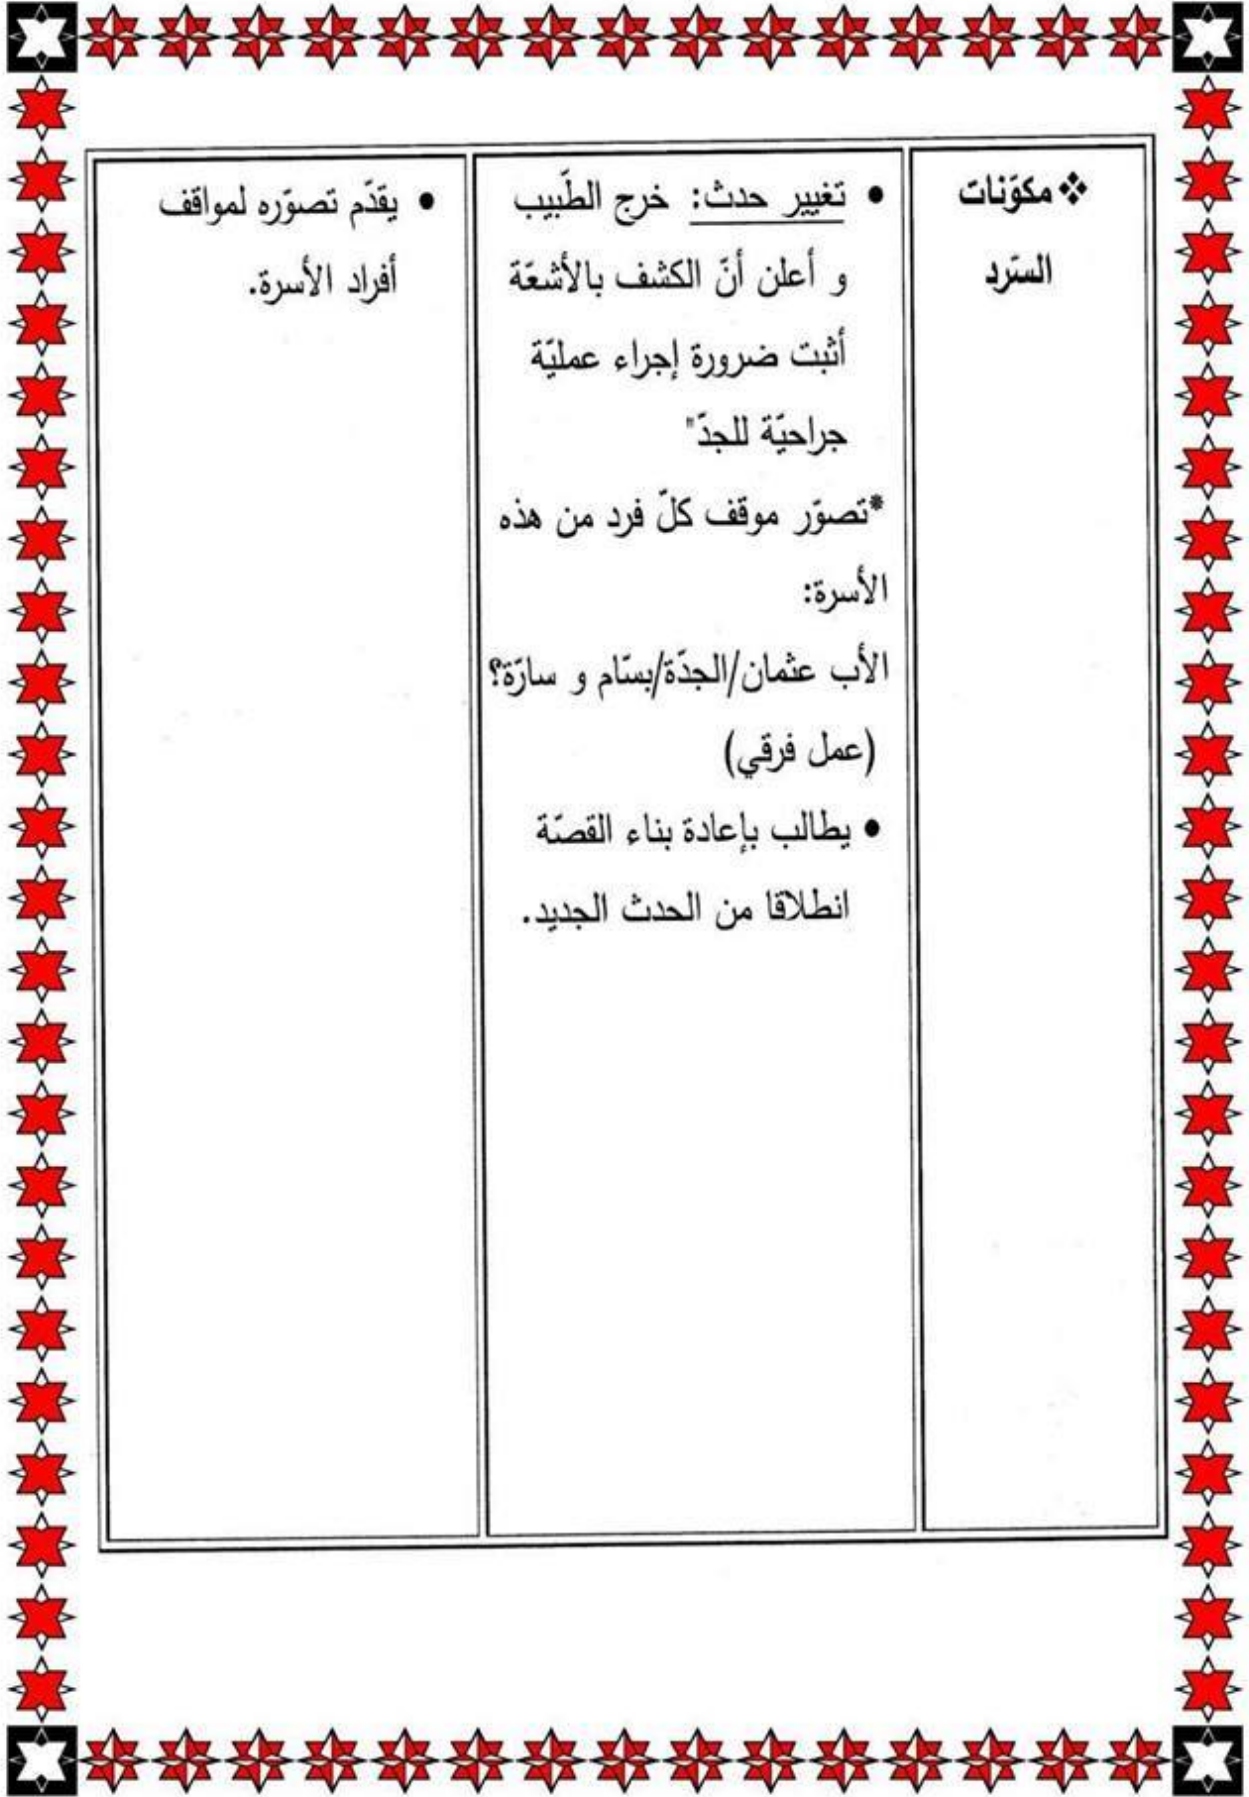 ❖ مكوّنات
السّرد
• تغيير حدث: خرج الطّبيب
و أعلن أنّ الكشف بالأشعّة
أثبت ضرورة إجراء عمليّة
جراحيّة للجدّ"
*تصوّر موقف كلّ فرد من هذه
الأسرة:
الأب عثمان/الجدّة/بسّام و سارّة؟
(عمل فرقي)
• يطالب بإعادة بناء القصّة
انطلاقا من الحدث الجديد.
• يقدّم تصوّره لمواقف
أفراد الأسرة.